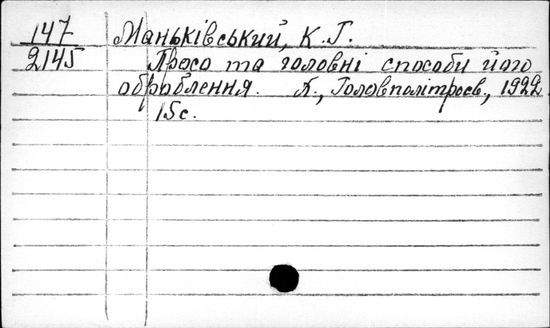 147 Маньківський, К. Г.
2145 Просо та головні способи його
оброблення. К., Головполітпросв., 1922
15с.